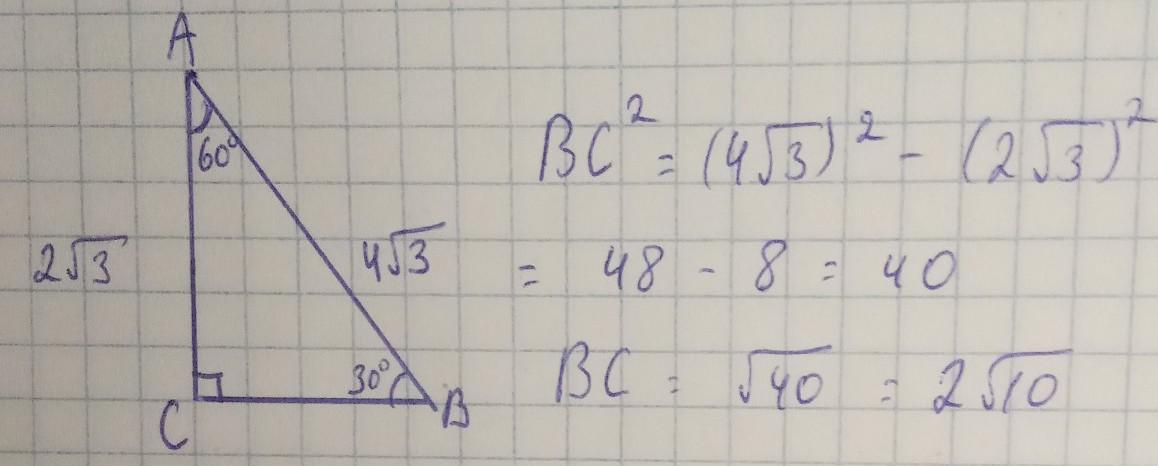 A
60°
2√3
4√3
30°
C
B
BC² = (4√3)² - (2√3)²
= 48 - 8 = 40
BC = √40 = 2√10